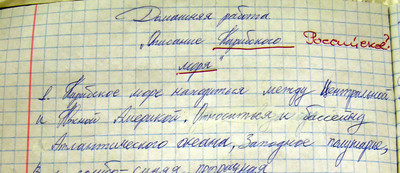 Домашняя работа
„Описание Карибского Российское?
моря"
1. Карибское море находится между Центральной
и Южной Америкой. Относиться к бассейну
Атлантического океана, Западное полушарие,